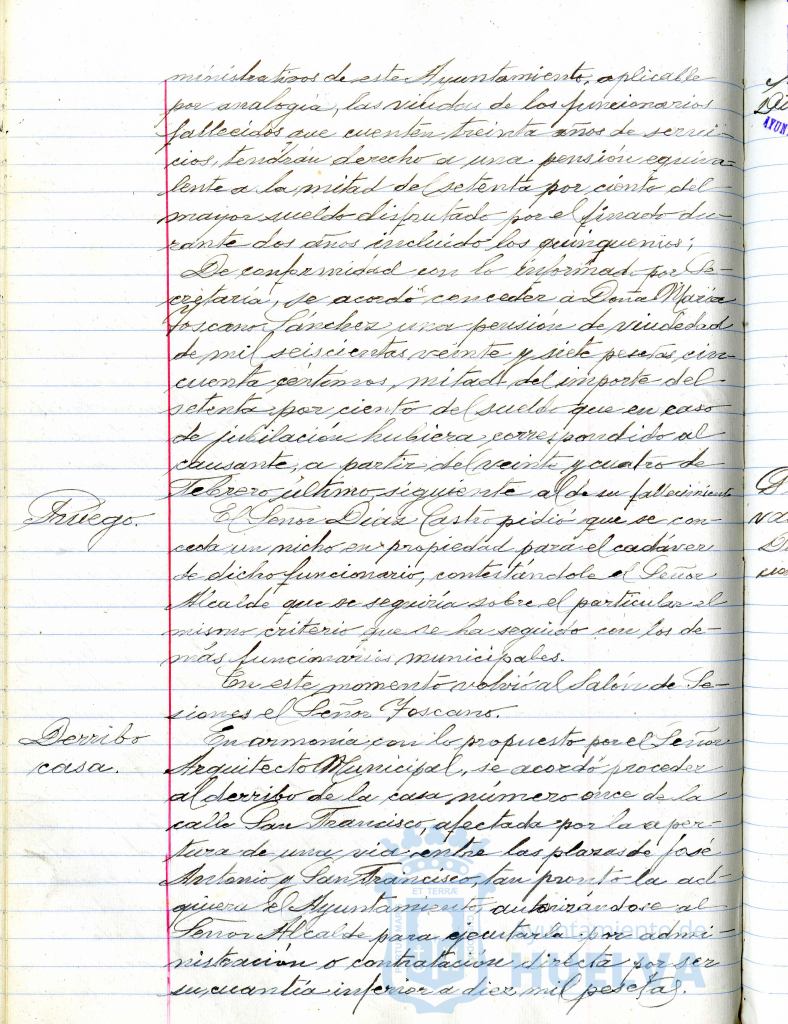 ministrativos de este Ayuntamiento, aplicable
por analogía, las viudas de los funcionarios
fallecidos que cuenten treinta años de servi-
cios, tendrán derecho a una pensión equiva-
lente a la mitad del setenta por ciento del
mayor sueldo disfrutado por el finado du-
rante dos años incluido los quinquenios;
De conformidad con lo informado por Se-
cretaría, se acordó conceder a Doña María
Toscano Sánchez una pensión de viudedad
de mil seiscientas veinte y siete pesetas cin-
cuenta céntimos, mitad del importe del
setenta por ciento del sueldo que en caso
de jubilación hubiera correspondido al
causante, a partir del veinte y cuatro de
Febrero último siguiente al de su fallecimiento
Ruego.
El Señor Díaz Castro pidió que se con-
ceda un nicho en propiedad para el cadáver
de dicho funcionario, contestándole el Señor
Alcalde que se seguiría sobre el particular el
mismo criterio que se ha seguido con los de-
más funcionarios municipales.
En este momento volvió al Salón de Se-
siones el Señor Toscano.
Derribo
casa.
En armonía con lo propuesto por el Señor
Arquitecto Municipal, se acordó proceder
al derribo de la casa número once de la
calle San Francisco, afectada por la aper-
tura de una vía entre las plazas de José
Antonio y San Francisco, tan pronto la ad-
quiera el Ayuntamiento autorizándose al
Señor Alcalde para ejecutarla por admi-
nistración o contratación directa por ser
su cuantía inferior a diez mil pesetas.
Ayuntamiento de
HUELVA